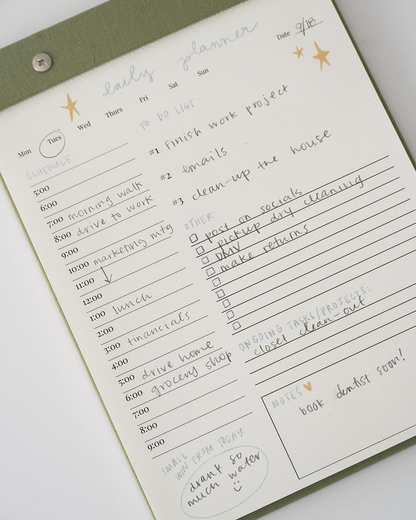 daily planner
Date 9/18
Mon Tues Wed Thurs Fri Sat Sun
SCHEDULE
5:00
6:00
7:00 morning walk
8:00 drive to work
9:00
10:00 marketing mtg
11:00
12:00
1:00 lunch
2:00
3:00 financials
4:00
5:00 drive home
6:00 grocery shop
7:00
8:00
9:00
SMALL
WIN FROM TODAY
drank so
much water
TO DO LIST
#1 finish work project
#2 emails
#3 clean-up the house
OTHER:
post on socials
pickup dry cleaning
DMV
make returns
ONGOING TASKS/PROJECTS:
closet clean-out
NOTES
book dentist soon!